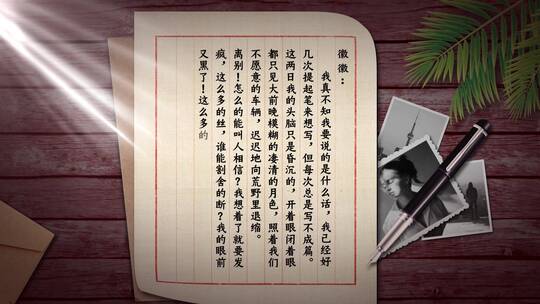 徽徽：
我真不知我要说的是什么话，我已经好
几次提起笔来想写，但每次总是写不成篇。
这两日我的头脑只是昏沉的，开着眼闭着眼
都只见大前晚模糊的凄清的月色，照着我们
不愿意的车辆，迟迟地向荒野里退缩。
离别！怎么的能叫人相信？我想着了就要发
疯，这么多的丝，谁能割舍的断？我的眼前
又黑了！这么多的